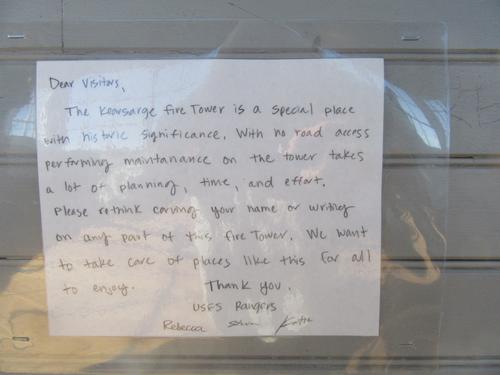 Dear Visitors,
The Kearsarge fire Tower is a special place
with historic significance. With no road access
performing maintanance on the tower takes
a lot of planning, time, and effort.
Please rethink carving your name or writing
on any part of this fire Tower. We want
to take care of places like this for all
to enjoy. Thank you.
USFS Rangers
Rebecca